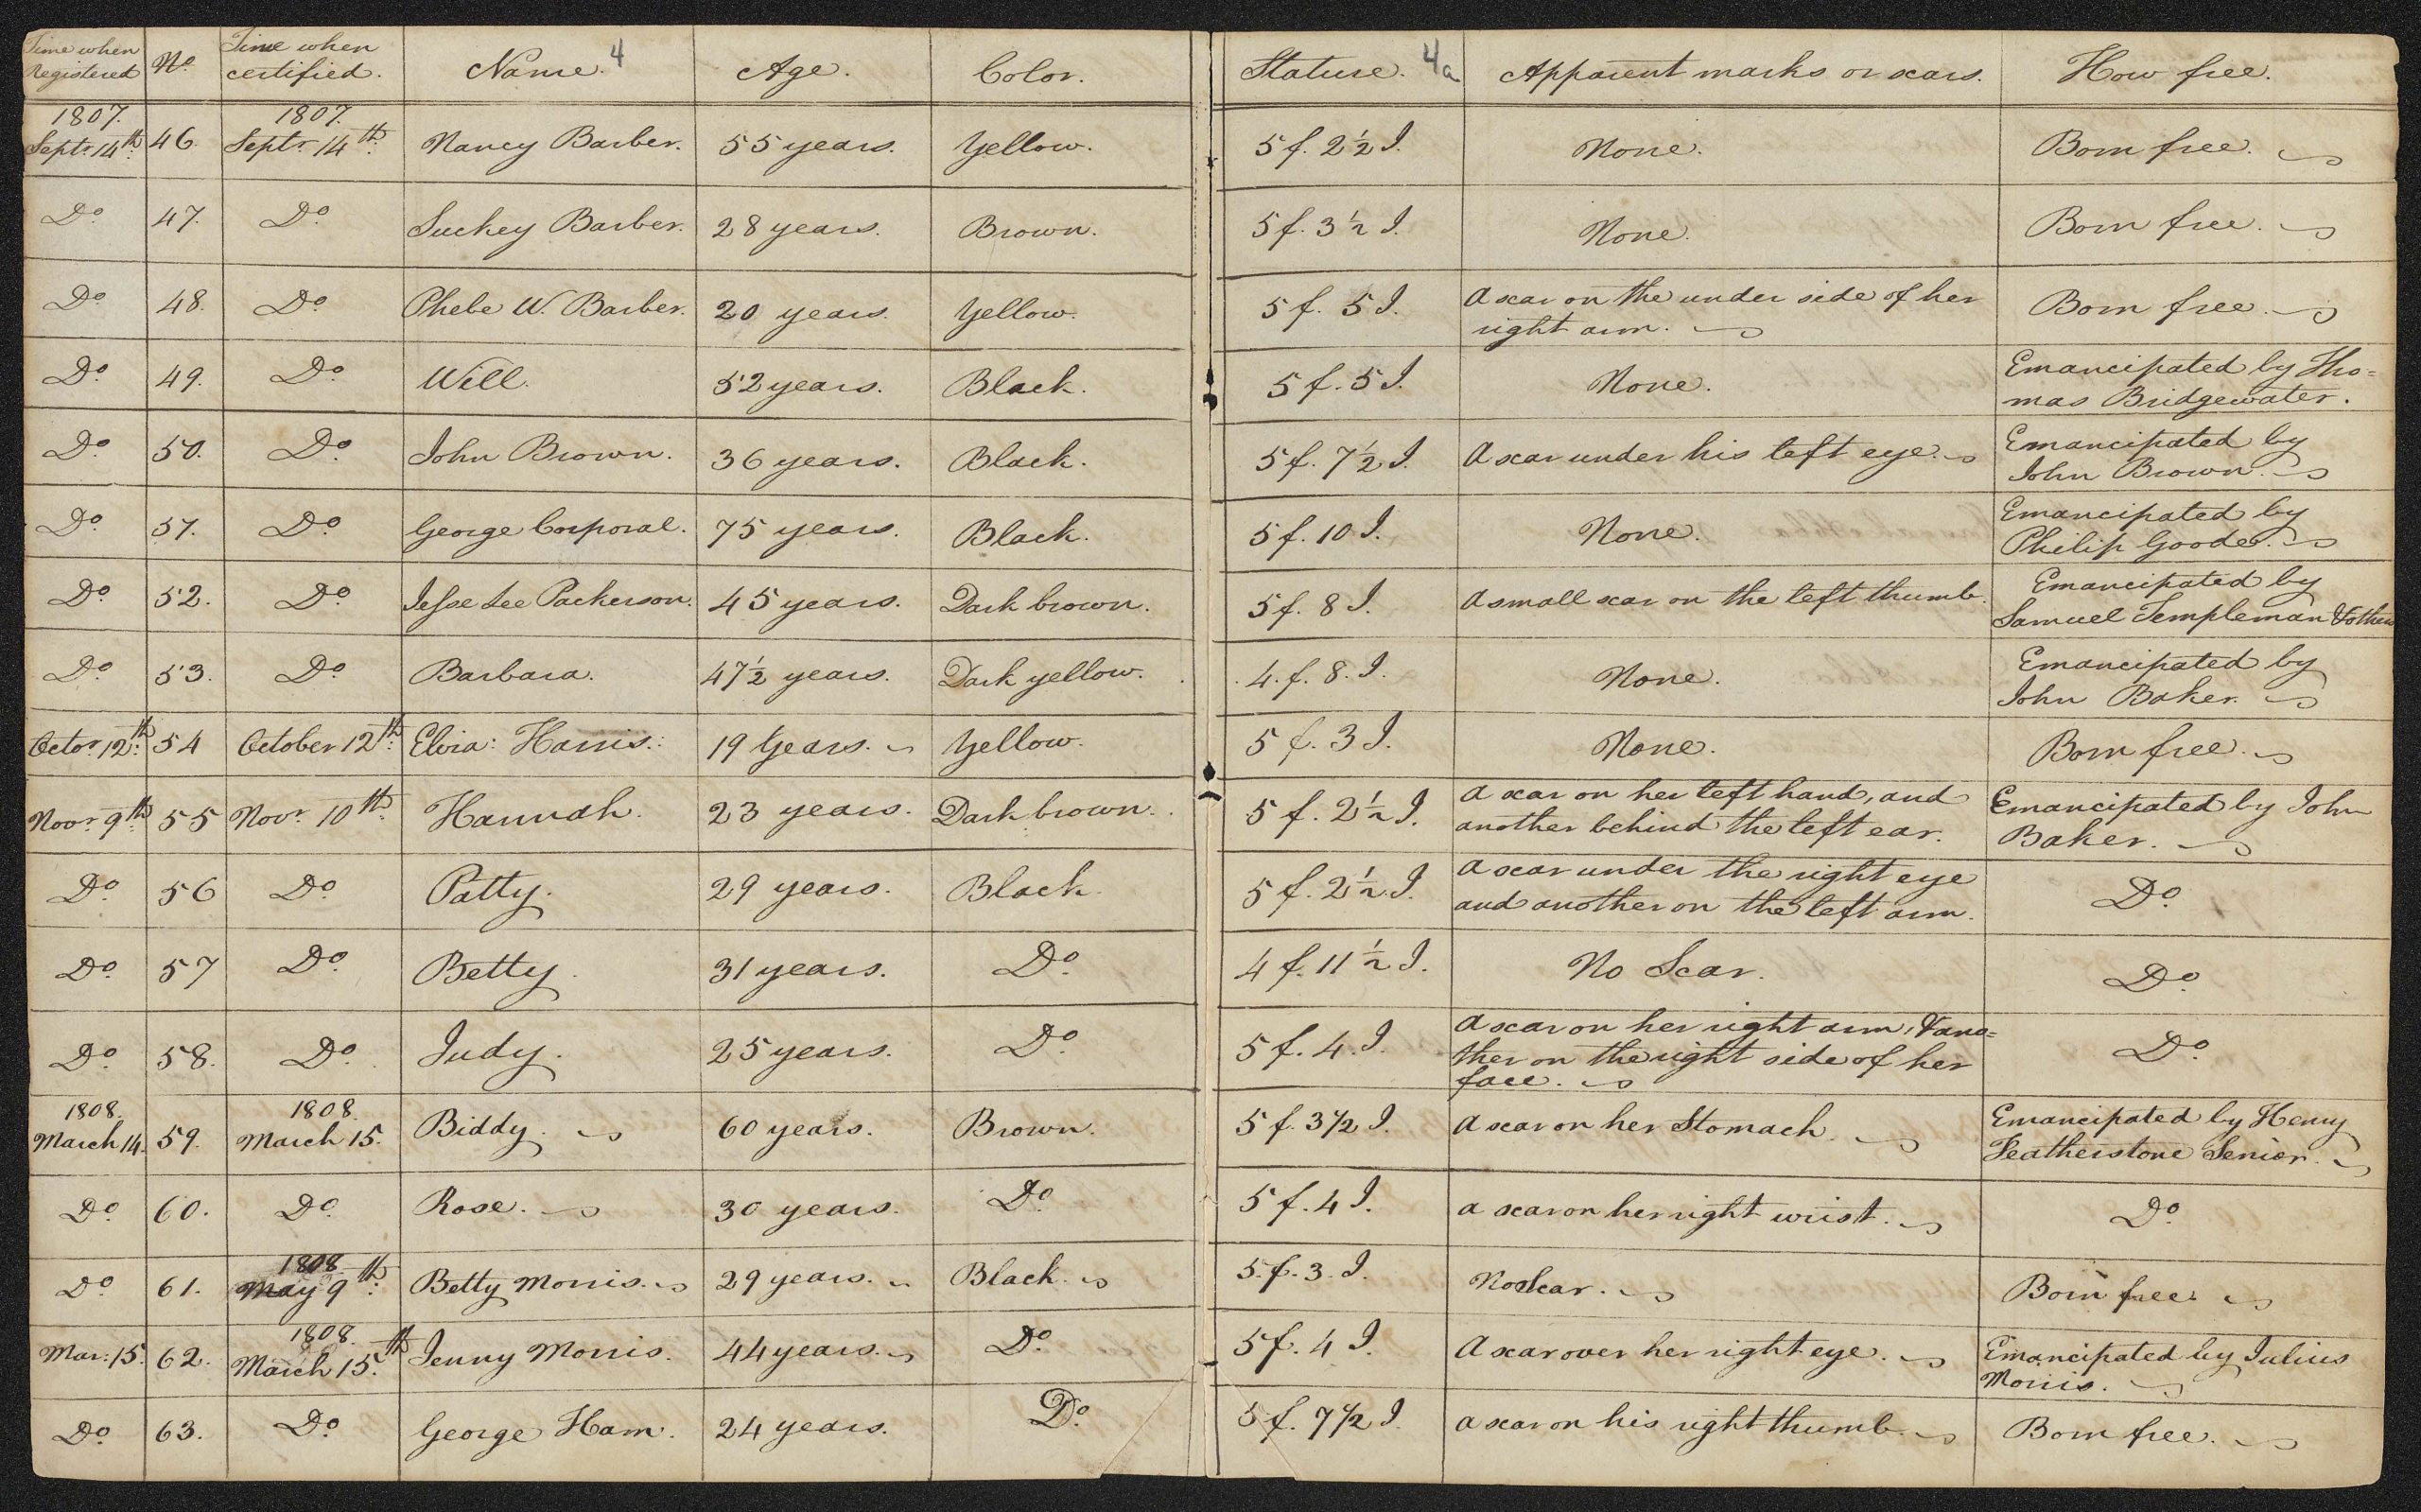 Time when Registered | No. | Time when certified. | Name. 4 | Age. | Color. | Stature. 4a | Apparent marks or scars. | How free.
1807. Septr. 14th. | 46. | 1807. Septr. 14th. | Nancy Barber. | 55 years. | Yellow. | 5 f. 2 1/2 I. | None. | Born free.
Do. | 47. | Do. | Suckey Barber. | 28 years. | Brown. | 5 f. 3 1/2 I. | None. | Born free.
Do. | 48. | Do. | Phebe W. Barber. | 20 years. | Yellow. | 5 f. 5 I. | A scar on the under side of her right arm. | Born free.
Do. | 49. | Do. | Will. | 52 years. | Black. | 5 f. 5 I. | None. | Emancipated by Tho=mas Bridgewater.
Do. | 50. | Do. | John Brown. | 36 years. | Black. | 5 f. 7 1/2 I. | A scar under his left eye. | Emancipated by John Brown.
Do. | 51. | Do. | George Corporal. | 75 years. | Black. | 5 f. 10 I. | None. | Emancipated by Philip Goode.
Do. | 52. | Do. | Jesse Lee Packerson. | 45 years. | Dark brown. | 5 f. 8 I. | A small scar on the left thumb. | Emancipated by Samuel Templeman & others
Do. | 53. | Do. | Barbara. | 47 1/2 years. | Dark yellow. | 4. f. 8. I. | None. | Emancipated by John Baker.
Octor. 12th. | 54 | October 12th. | Elvia: Harris.: | 19 Years. | Yellow. | 5 f. 3 I. | None. | Born free.
Novr. 9th. | 55 | Novr. 10th. | Hannah. | 23 years. | Dark brown. | 5 f. 2 1/2 I. | A scar on her left hand, and another behind the left ear. | Emancipated by John Baker.
Do. | 56 | Do. | Patty. | 29 years. | Black. | 5 f. 2 1/2 I. | A scar under the right eye and another on the left arm. | Do.
Do. | 57 | Do. | Betty. | 31 years. | Do. | 4 f. 11 1/2 I. | No Scar. | Do.
Do. | 58. | Do. | Judy. | 25 years. | Do. | 5 f. 4. I. | A scar on her right arm, & ano=ther on the right side of her face. | Do.
1808. March 14. | 59. | 1808. March 15. | Biddy. | 60 years. | Brown. | 5 f. 3 1/2 I. | A scar on her Stomach. | Emancipated by Henry Featherstone Senior.
Do. | 60. | Do. | Rose. | 30 years. | Do. | 5 f. 4 I. | a scar on her right wrist. | Do.
Do. | 61. | 1808 May 9th. | Betty Morris. | 29 years. | Black. | 5. f. 3. I. | No Scar. | Born free.
Mar: 15. | 62. | 1808. March 15th. | Jenny Morris. | 44 years. | Do. | 5 f. 4 I. | A scar over her right eye. | Emancipated by Julius Morris.
Do. | 63. | Do. | George Ham. | 24 years. | Do. | 5 f. 7 1/2 I. | a scar on his right thumb | Born free.